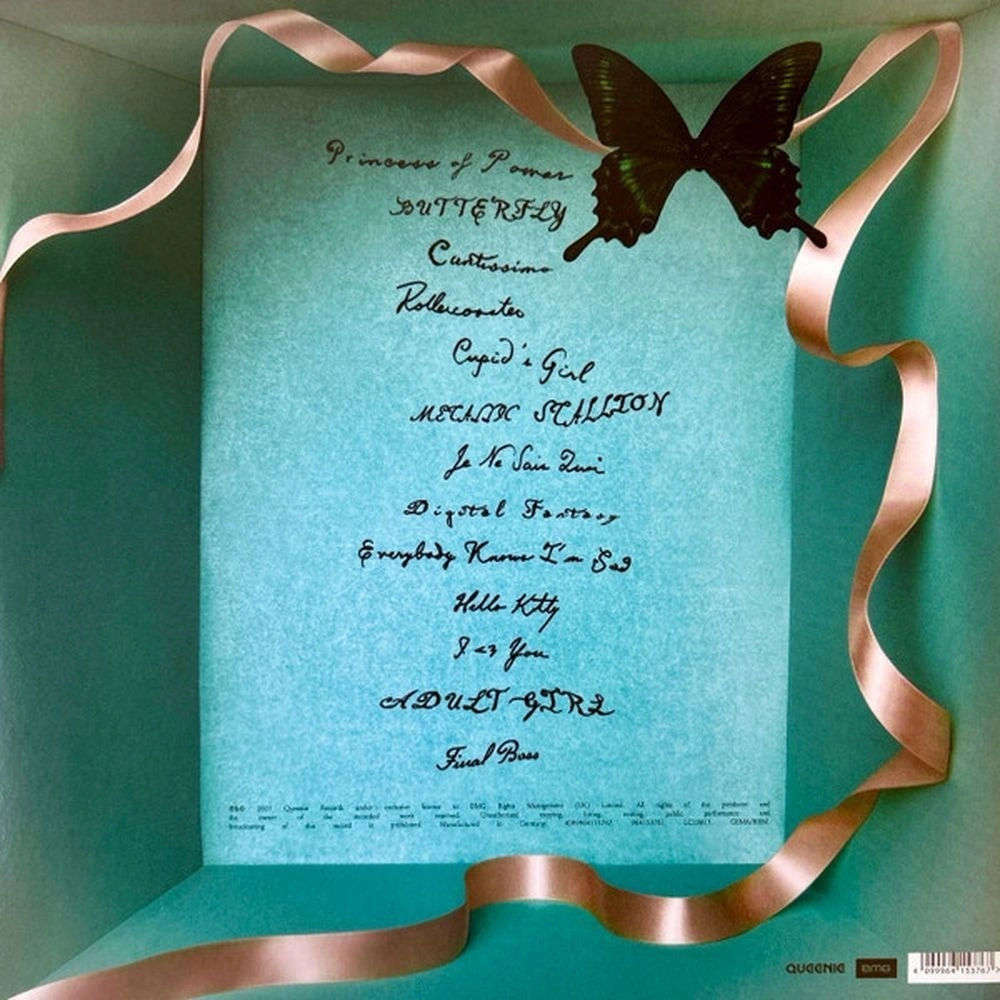 Princess of Power
BUTTERFLY
Cuntissimo
Rollercoaster
Cupid's Girl
METALLIC STALLION
Je Ne Sais Quoi
Digital Fantasy
Everybody Knows I'm Sad
Hello Kitty
I <3 You
ADULT GIRL
Final Boss
Queenie Records under exclusive license to BMG Rights Management (UK) Limited. All rights of the producer and
the owner of the recorded work reserved. Unauthorised copying, hiring, renting, public performance and
broadcasting of this record is prohibited. Manufactured in Germany.
QUEENIE BMG